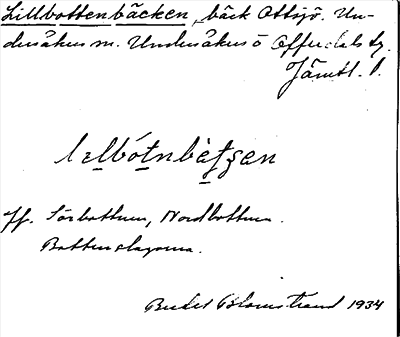 Lillbottenbäcken, bäck Ottsjö. Un-
dersåkers sn. Undersåkers o Offerdals tg.
Jämtl. l.
Jf. Sörbottnen, Nordbottnen.
Bottenslagorna.
Bertil Blomstrand 1934